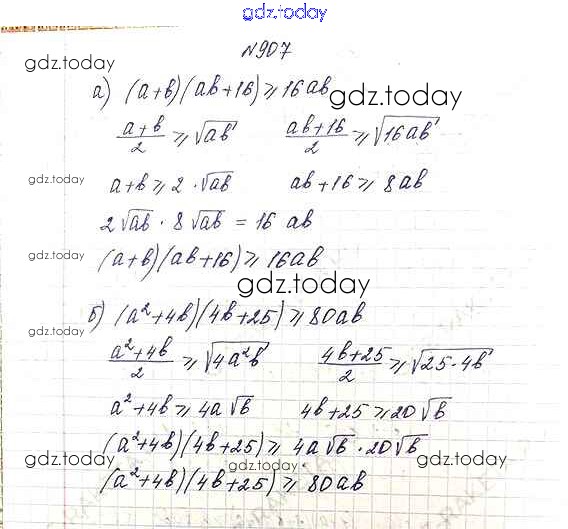 gdz.today
№907
gdz.today
а) (a+b)(ab+16)≥16ab
gdz.today
(a+b)/2 ≥ √ab (ab+16)/2 ≥ √16ab
gdz.today a+b ≥ 2·√ab ab+16 ≥ 8ab
2√ab · 8√ab = 16 ab
gdz.today (a+b)(ab+16) ≥ 16ab
gdz.today
б) (a²+4b)(4b+25) ≥ 80ab
gdz.today
(a²+4b)/2 ≥ √4a²b (4b+25)/2 ≥ √25·4b
a²+4b ≥ 4a√b 4b+25 ≥ 20√b
(a²+4b)(4b+25) ≥ 4a√b · 20√b
gdz.today gdz.today gdz.today
(a²+4b)(4b+25) ≥ 80ab